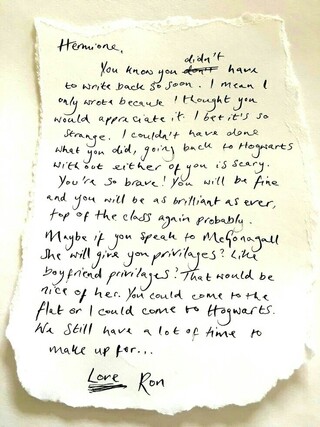 Hermione,
You know you don't didn't have
to write back so soon. I mean I
only wrote because I thought you
would appreciate it. I bet it's so
strange. I couldn't have done
what you did, going back to Hogwarts
without either of you is scary.
You're so brave! You will be fine
and you will be as brilliant as ever,
top of the class again probably.
Maybe if you speak to McGonagall
she will give you privilages? Like
boyfriend privilages? That would be
nice of her. You could come to the
flat or I could come to Hogwarts.
We still have a lot of time to
make up for...
Love Ron